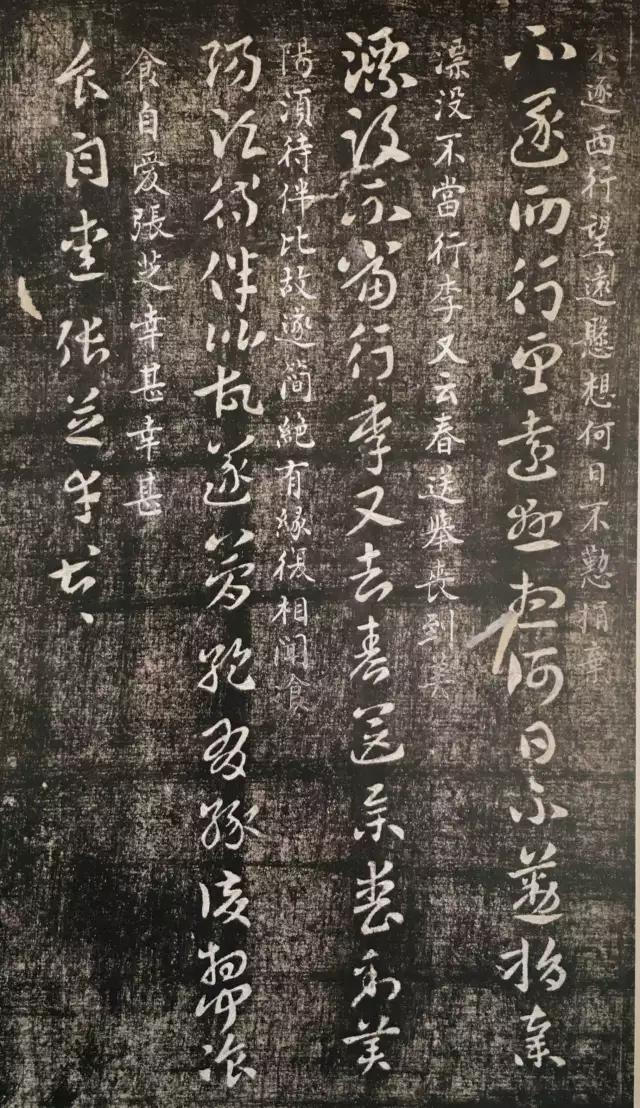 不逐西行望遠懸想何日不懃捐棄
不逐西行望遠懸想何日不懃捐棄
漂没不當行李又云春送舉喪到美
漂没不當行李又去春送舉喪到美
陽須待伴比故遂簡絶有緣復相聞飡
陽須待伴比故遂簡絶有緣復相聞飡
食自愛張芝幸甚幸甚
食自愛張芝幸甚〻